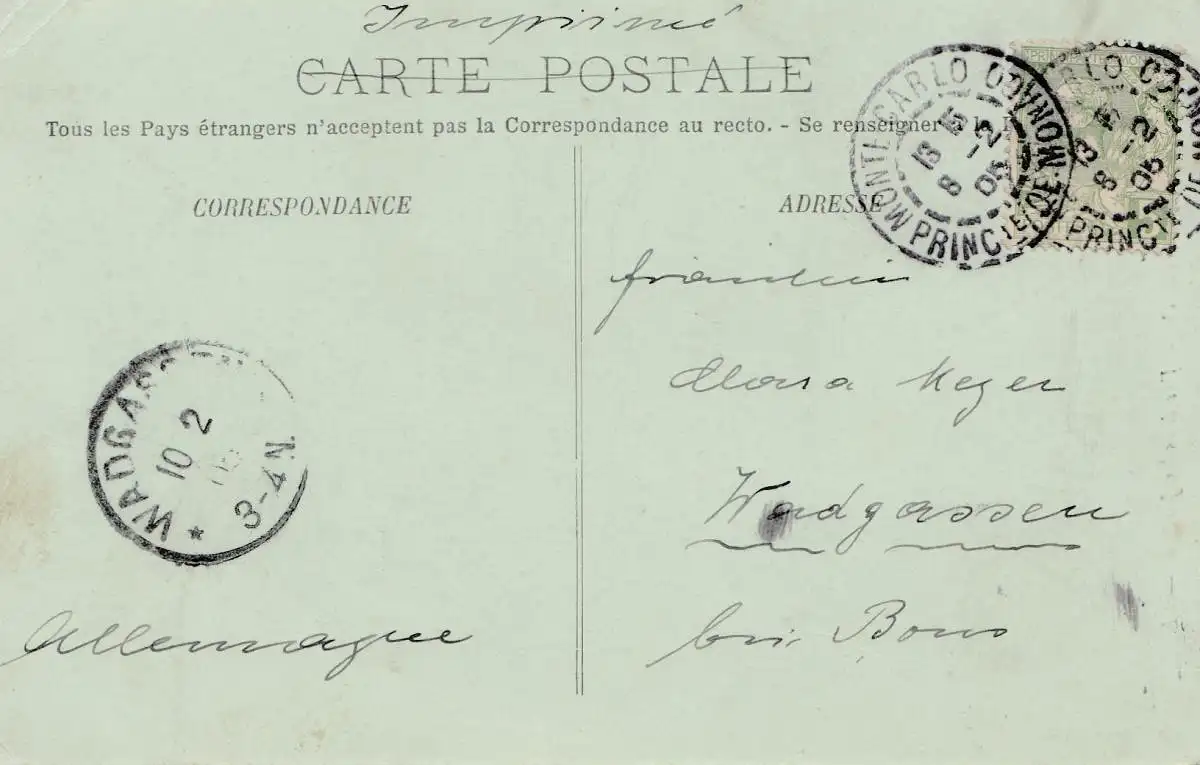 Imprimé
CARTE POSTALE
Tous les Pays étrangers n'acceptent pas la Correspondance au recto. - Se renseigner à la P
CORRESPONDANCE
ADRESSE
MONTE CARLO
PRINCTÉ DE MONACO
13 15
8 -2
05
CARLO
PRINCTÉ DE MONACO
13 15
8 -2
05
fräulein
Clara Meyer
Wadgassen
bei Bous
WADGASSEN
10 2
05
3-4N.
*
Allemagne